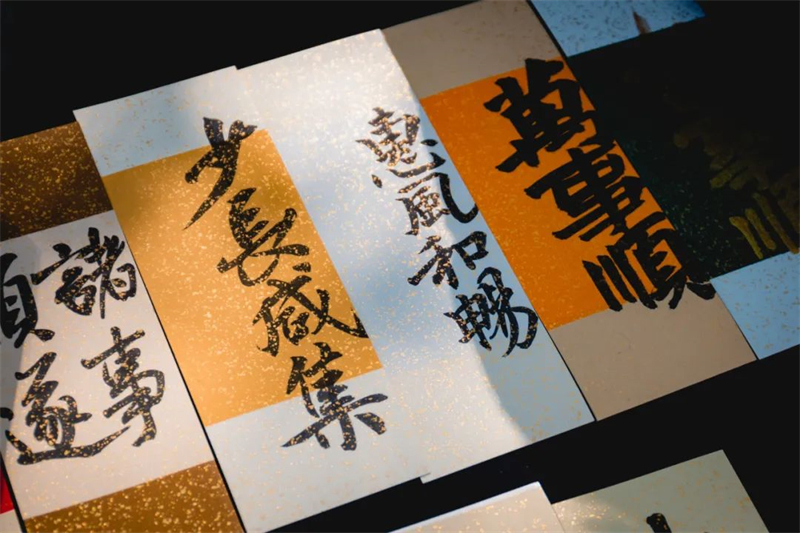 萬事順
惠風和暢
少長咸集
諸事
順遂